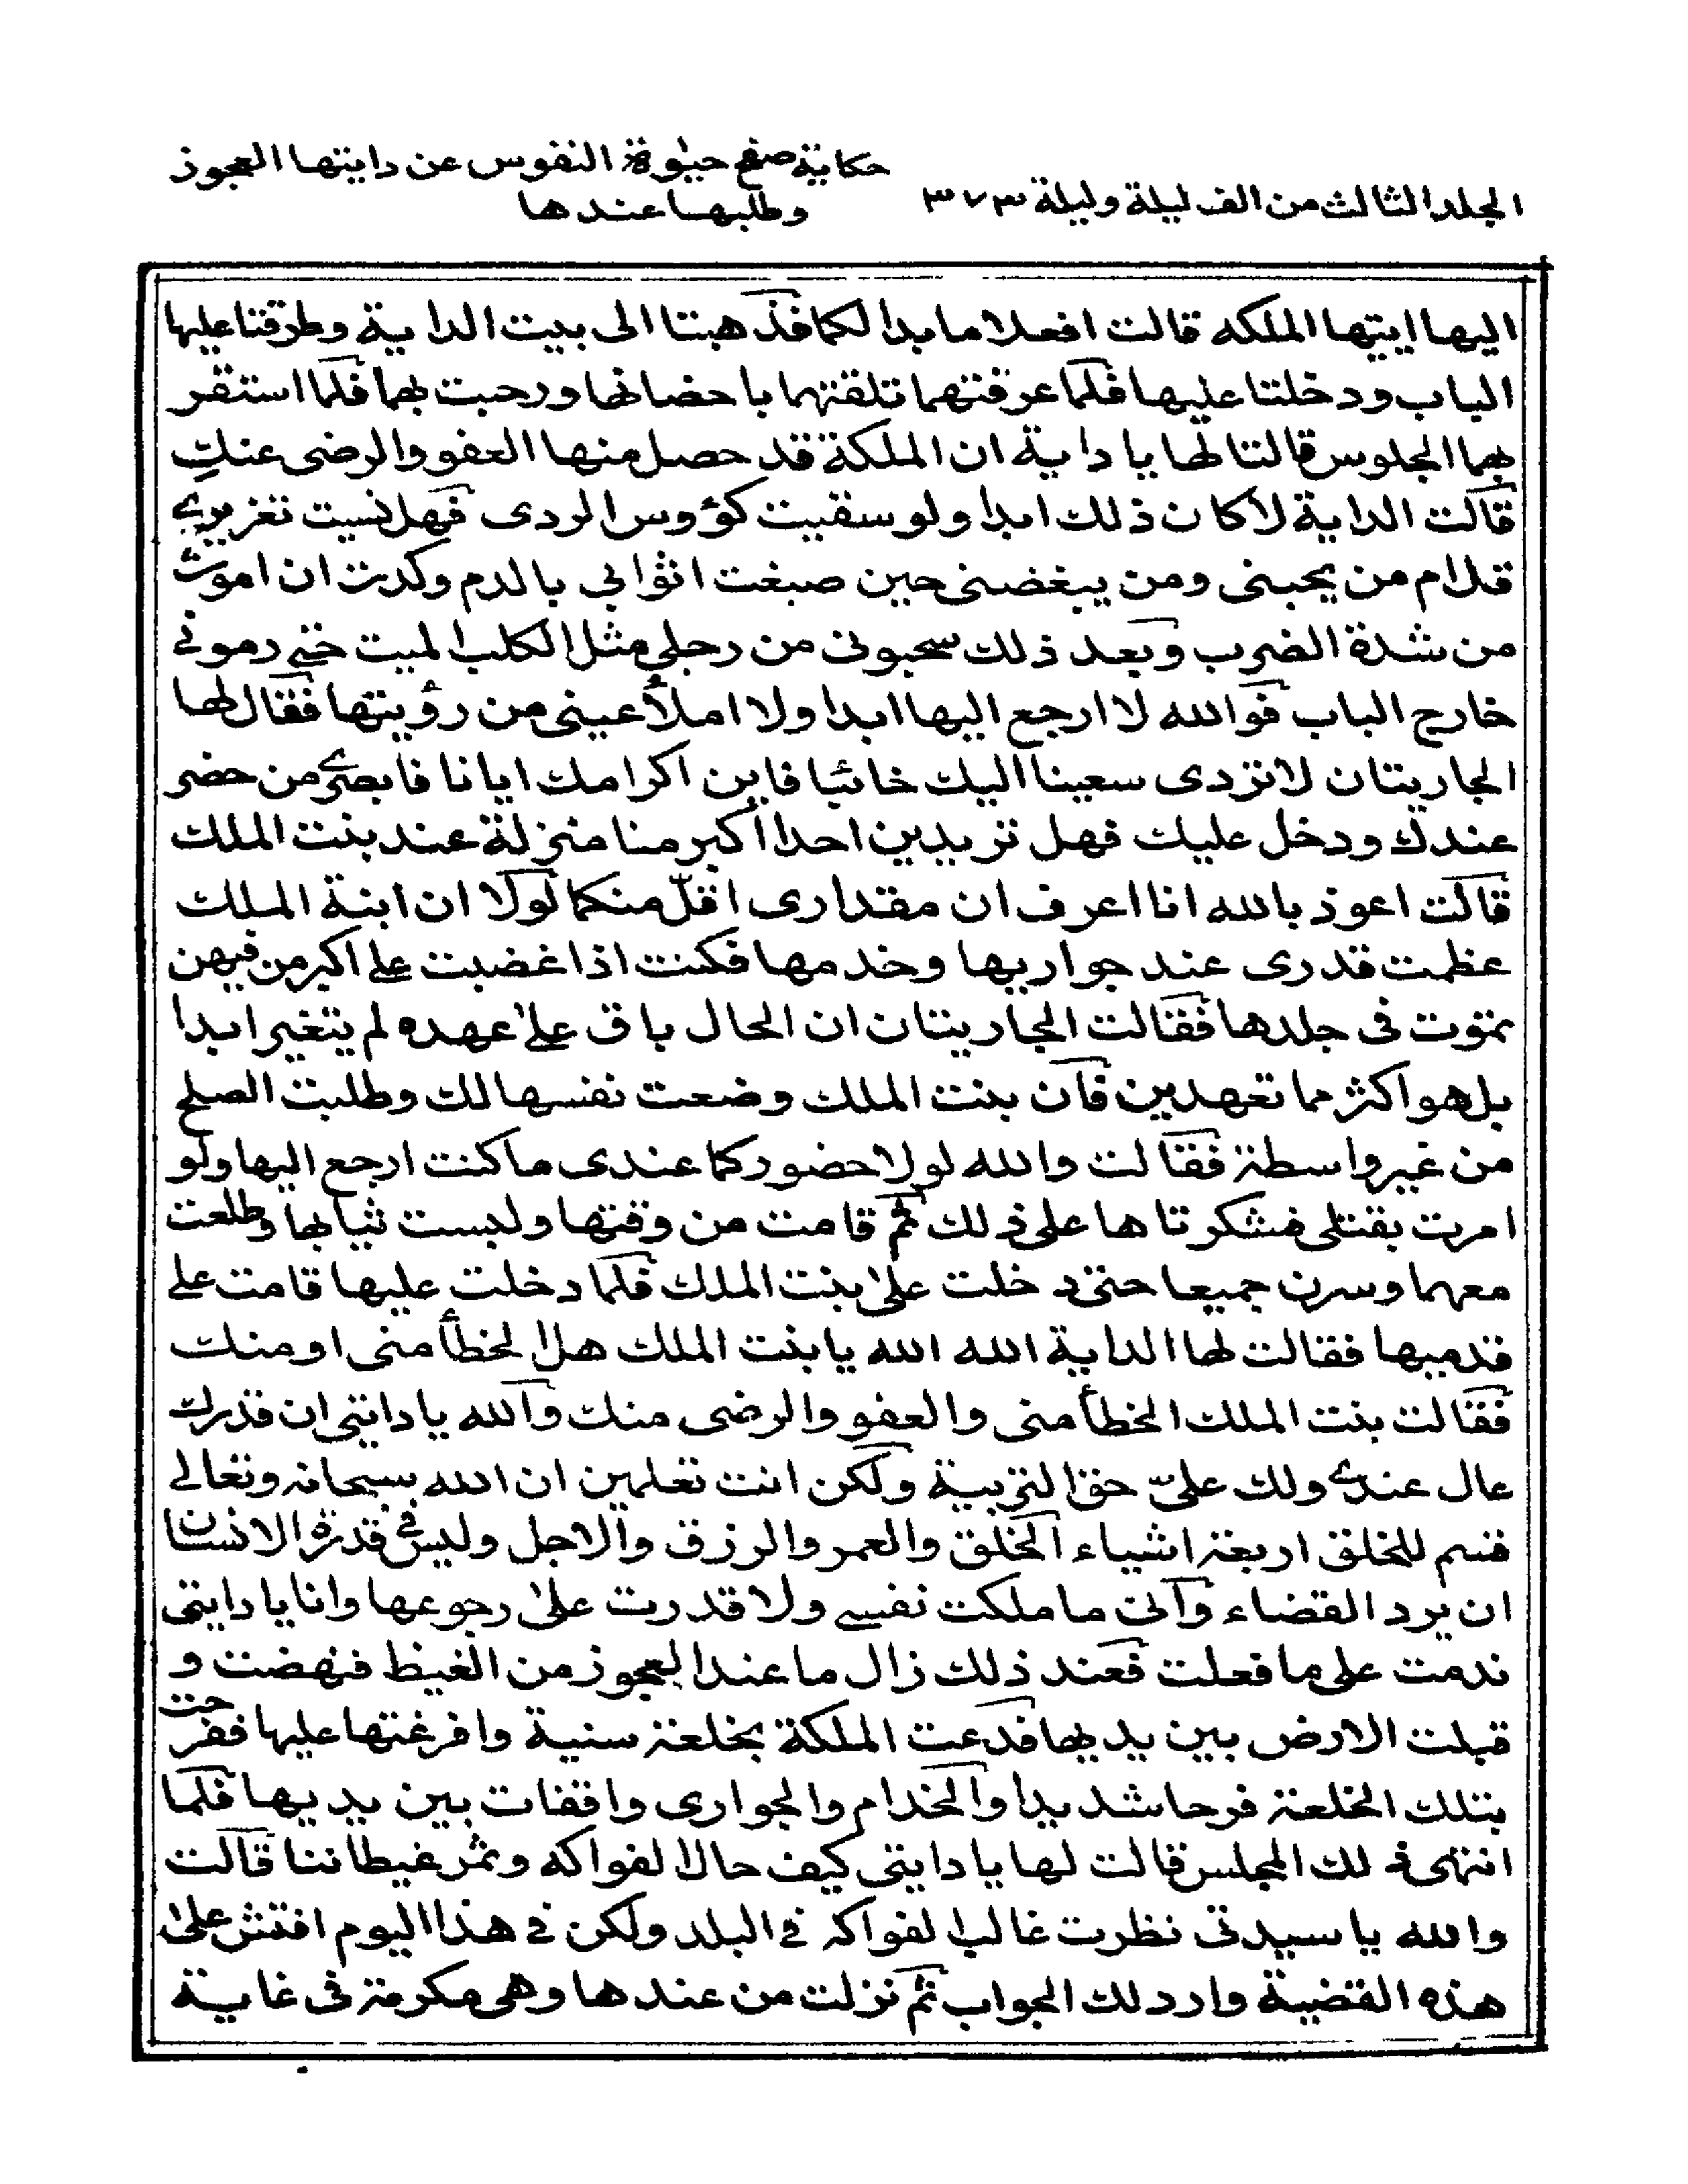 المجلد الثالث من الف ليلة وليلة ٣٧٣
حكاية صفح حيٰوة النفوس عن دايتها العجوز
وطلبها عندها
اليها ايتها الملكه قالت افعلا ما بدا لكما فذهبتا الى بيت الداية وطرقتا عليها
الباب ودخلتا عليها فلما عرفتهما تلقتهما باحضانها ورحبت بهما فلما استقر
بهما الجلوس قالتا لها يا داية ان الملكة قد حصل منها العفو والرضى عنكِ
قالت الداية لا كان ذلك ابدا ولو سقيت كؤوس الردى فهل نسيت تعزيرى
قدام من يحبنى ومن يبغضنى حين صبغت اثوابي بالدم وكدت ان اموت
من شدة الضرب وبعد ذلك سحبونى من رجلي مثل الكلب الميت حتى رمونى
خارج الباب فوالله لا ارجع اليها ابدا ولا املأ عينى من رؤيتها فقال لها
الجاريتان لا تردى سعينا اليك خائبا فاين اكرامك ايانا فابصرى من حضر
عندك ودخل عليك فهل تريدين احدا أكبر منا منزلة عند بنت الملك
قالت اعوذ بالله انا اعرف ان مقدارى اقلّ منكما لولا ان ابنة الملك
عظمت قدرى عند جواريها وخدمها فكنت اذا غضبت على اكبر من فيهن
تموت فى جلدها فقالت الجاريتان ان الحال باق علىٰ عهده لم يتغير ابدا
بل هو اكثر مما تعهدين فان بنت الملك وضعت نفسها لك وطلبت الصلح
من غير واسطة فقالت والله لولا حضوركما عندى ما كنت ارجع اليها ولو
امرت بقتلى فشكرتاها على ذلك ثم قامت من وقتها ولبست ثيابها وطلعت
معهما وسرن جميعا حتى دخلت علىٰ بنت الملك فلما دخلت عليها قامت على
قدميها فقالت لها الداية الله الله يا بنت الملك هل الخطأ منى او منك
فقالت بنت الملك الخطأ منى والعفو والرضى منك والله يا دايتى ان قدرك
عال عندى ولك علىّ حق التربية ولكن انت تعلمين ان الله سبحانه وتعالى
قسم للخلق اربعة اشياء الخلق والعمر والرزق والاجل وليس فى قدرة الانسان
ان يرد القضاء وانى ما ملكت نفسى ولا قدرت علىٰ رجوعها وانا يا دايتى
ندمت على ما فعلت فعند ذلك زال ما عند العجوز من الغيظ فنهضت و
قبلت الارض بين يديها فدعت الملكة بخلعة سنية وافرغتها عليها ففرحت
بتلك الخلعة فرحا شديدا والخدام والجوارى واقفات بين يديها فلما
انتهى ذلك المجلس قالت لها يا دايتى كيف حال الفواكه وثمر غيطاننا قالت
والله يا سيدتى نظرت غالب الفواكه فى البلد ولكن فى هذا اليوم افتش علىٰ
هذه القضية وارد لك الجواب ثم نزلت من عندها وهى مكرمة فى غاية